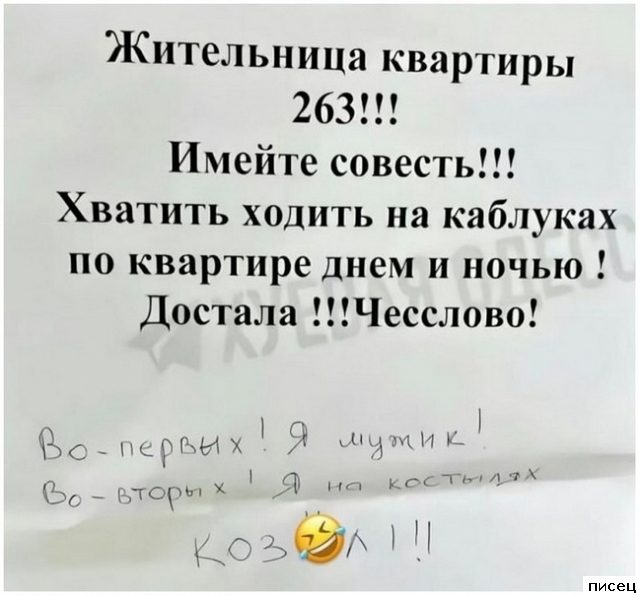 Жительница квартиры
263!!!
Имейте совесть!!!
Хватить ходить на каблуках
по квартире днем и ночью !
Достала !!!Чесслово!
Во-первых! Я мужик!
Во-вторых! Я на костылях
КОЗ🤣Л!!!
писец